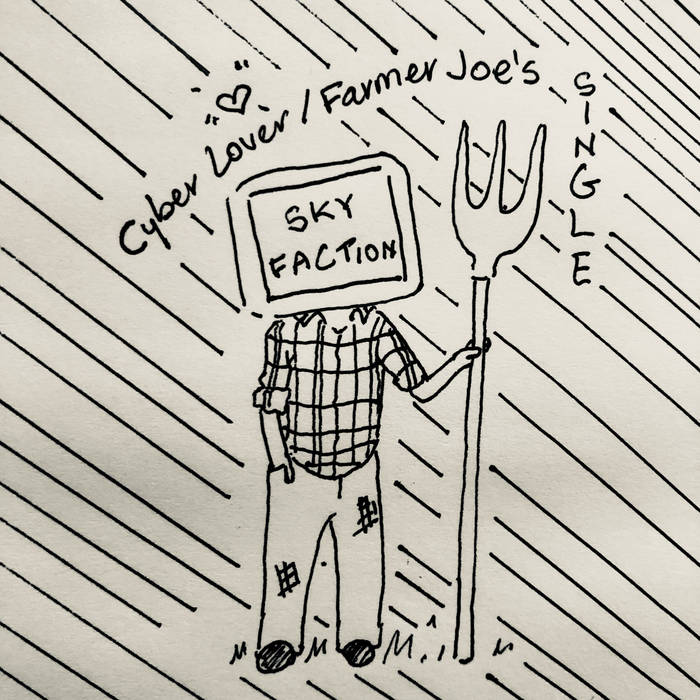 Cyber Lover / Farmer Joe's
SINGLE
SKY
FACTION